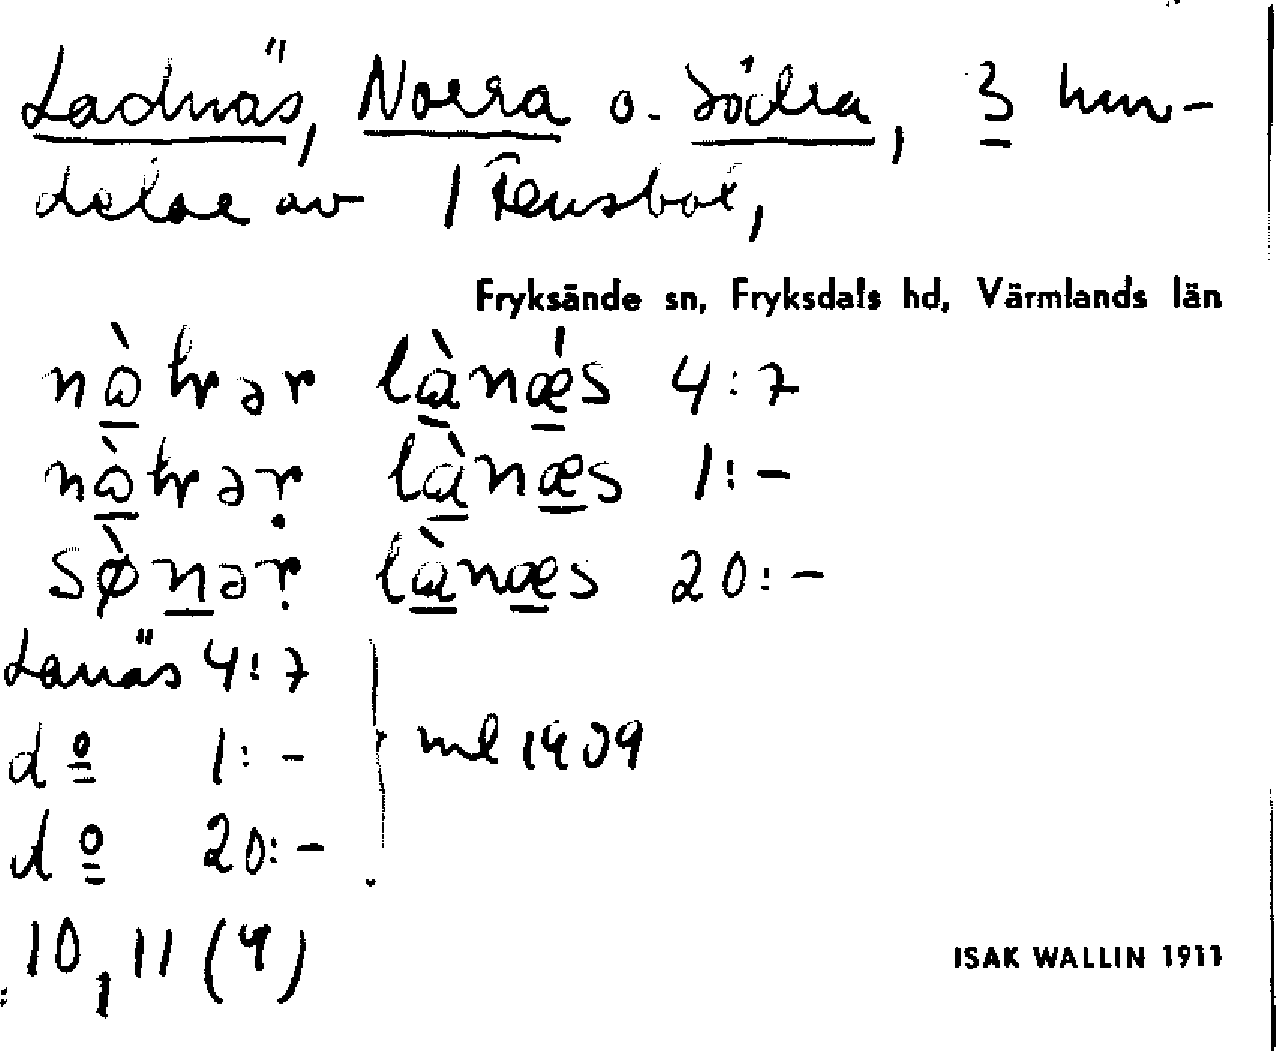 Ladnäs, Norra o. Södra, 3 hm-
delar av 1 Tensbol,
Fryksände sn, Fryksdals hd, Värmlands län
nɷ̀trər lɑ̀nǽs 4:7
nɷ̀trəṛ lɑ̀næs 1:-
sø̀nəṛ lɑ̀næs 20:-
Lanäs 4:7
dº 1:-
dº 20:-
ml 1909
10, 11 (9)
ISAK WALLIN 1911